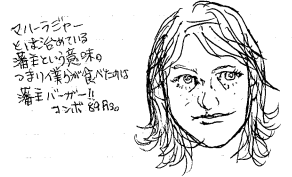 マハーラジャー
といえば治めている
藩主という意味の
つまり僕らが食べたのは
藩主バーガー!!
コンボ 89Rs。